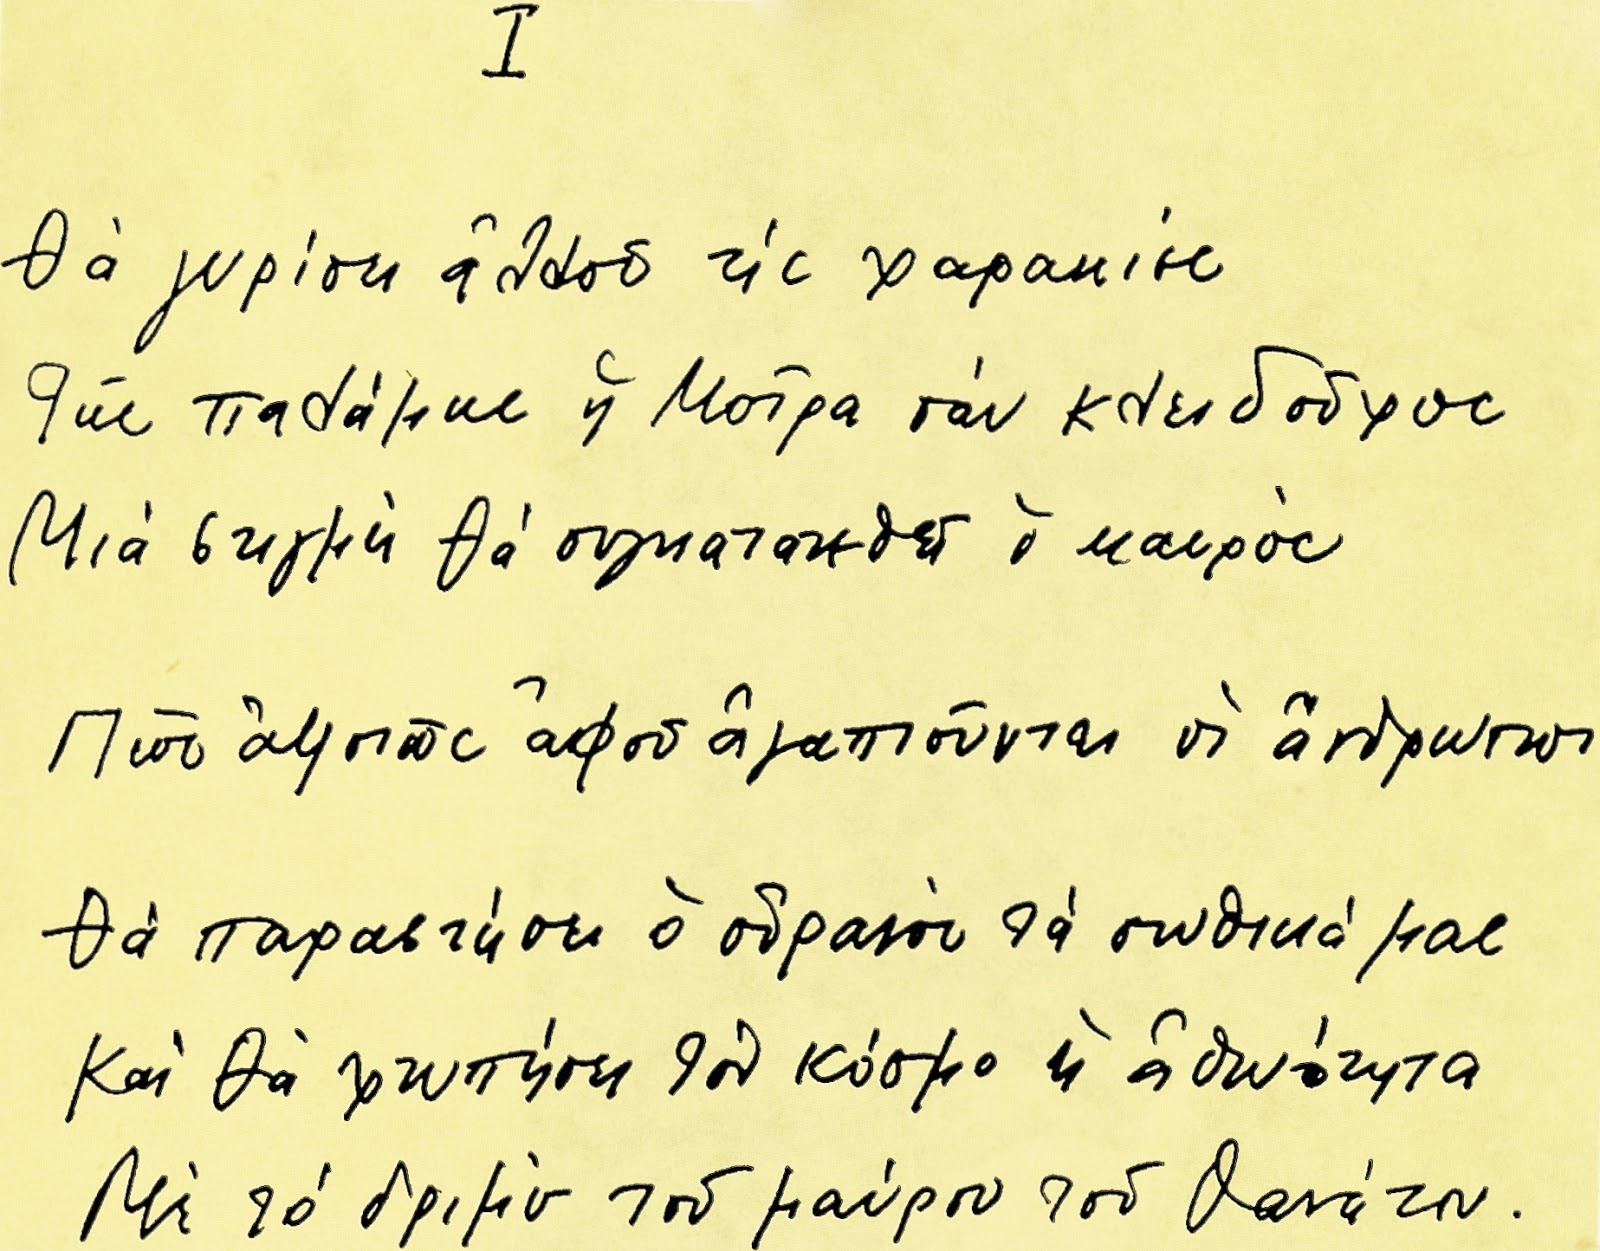 I
Θὰ γυρίσει ἀλλοῦ τὶς χαρακιὲς
Τῆς παλάμης ἡ Μοῖρα σὰν κλειδοῦχος
Μιὰ στιγμὴ θὰ συγκατατεθεῖ ὁ καιρὸς
Πῶς ἀλλιῶς ἀφοῦ ἀγαπιοῦνται οἱ ἄνθρωποι
Θὰ παραστήσει ὁ οὐρανὸς τὰ σωθικά μας
Καὶ θὰ χτυπήσει τὸν κόσμο ἡ ἀθωότητα
Μὲ τὸ δριμὺ τοῦ μαύρου τοῦ θανάτου.